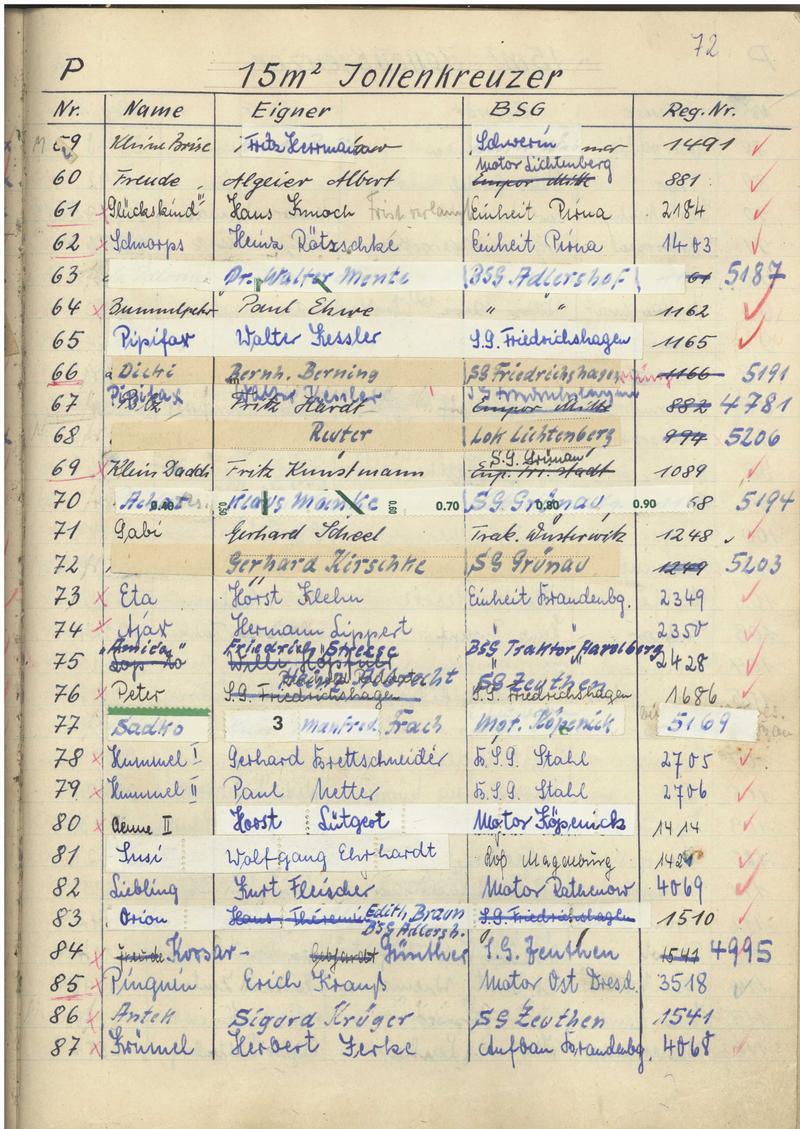 72
P 15m² Jollenkreuzer
Nr. Name Eigner BSG Reg.Nr.
59 Kleine Brise Fritz Herrmann Schwerin 1491
60 Freude Algeier Albert Motor Lichtenberg Empor Mitte 881
61 "Glückskind" Hans Knoch Einheit Pirna 2184
62 Schnorps Heinz Rätzschke Einheit Pirna 1403
63 Dr. Walter Mente BSG Adlershof 61 5187
64 Paul Ehwe " " 1162
65 Pipifax Walter Kessler S.G. Friedrichshagen 1165
66 Dichi Bernh. Berning SG Friedrichshagen 1166 5191
67 Pipifax Walter Kessler Fritz Hardt Empor Mitte 882 4781
68 Reuter Lok Lichtenberg 994 5206
69 Klein Daddi Fritz Kunstmann S.G. Grünau 1089
70 Klaus Manke SG Grünau 68 5194
0.40 0.50 0.60 0.70 0.80 0.90
71 Gabi Gerhard Scheel Trak. Wusterwitz 1248
72 Gerhard Kirschke SG Grünau 1249 5203
73 Eta Horst Klehn Einheit Brandenbg. 2349
74 Ajax Hermann Lippert " 2350
75 "Amica" Friedrich Streese BSG Traktor Havelberg 2428
76 Peter S.G. Friedrichshagen SG Zeuthen S.G. Friedrichshagen 1686
77 Sadko 3 Manfred Frach Mot. Köpenick 5169
78 Hummel I Gerhard Brettschneider B.S.G. Stahl 2705
79 Hummel II Paul Netter B.S.G. Stahl 2706
80 Aenne II Horst Lütgert Motor Köpenick 1414
81 Susi Wolfgang Ehrhardt Magdeburg
82 Liebling Kurt Fleischer Motor Rathenow 4069
83 Orion Edith Braun BSG Adlersh. S.G. Friedrichshagen 1510
84 Freude Korsar Gebhardt Günther S.G. Zeuthen 1541 4995
85 Pinguin Erich Krauß Motor Ost Dresd. 3518
86 Antek Sigard Krüger SG Zeuthen 1541
87 Krümel Herbert Ferke Aufbau Brandenbg. 4068